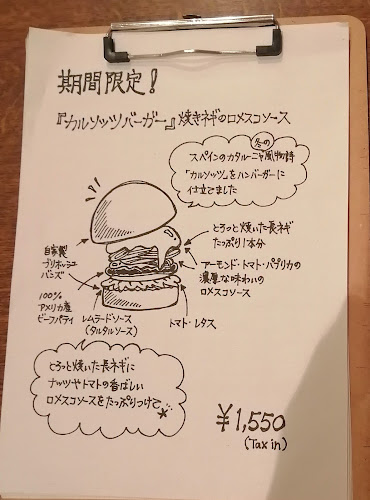 期間限定!
『カルソッツバーガー』焼きネギのロメスコソース
冬の
スペインのカタルーニャ風物詩
「カルソッツ」をハンバーガーに
仕立てました
とろっと焼いた長ネギ
たっぷり1本分
アーモンド・トマト・パプリカの
濃厚な味わいの
ロメスコソース
自家製
ブリオッシュ
バンズ
100%
アメリカ産
ビーフパティ
レムラードソース
(タルタルソース)
トマト・レタス
とろっと焼いた長ネギに
ナッツやトマトの香ばしい
ロメスコソースをたっぷりつけて
¥1,550
(Tax in)